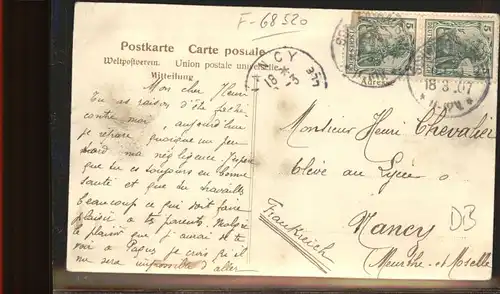 F-68520
Postkarte Carte postale
Weltpostverein. Union postale universelle
Mitteilung
Mon cher Henri
Tu as raison d'être fâché
contre moi, aujourd'hui
je répare quoique un peu
tard ma négligence. J'espère
que tu es toujours en bonne
santé et que tu travailles
beaucoup ce qui doit faire
plaisir à tes parents. Malgré
le plaisir que j'aurai de te
voir à Pagny je crois qu'il
me sera impossible d'aller
NANCY
5 5
DEUTSCHES REICH
18.3.07
Monsieur Henri Chevalier
élève au Lycée
Nancy
Meurthe-et-Moselle
Frankreich
DB